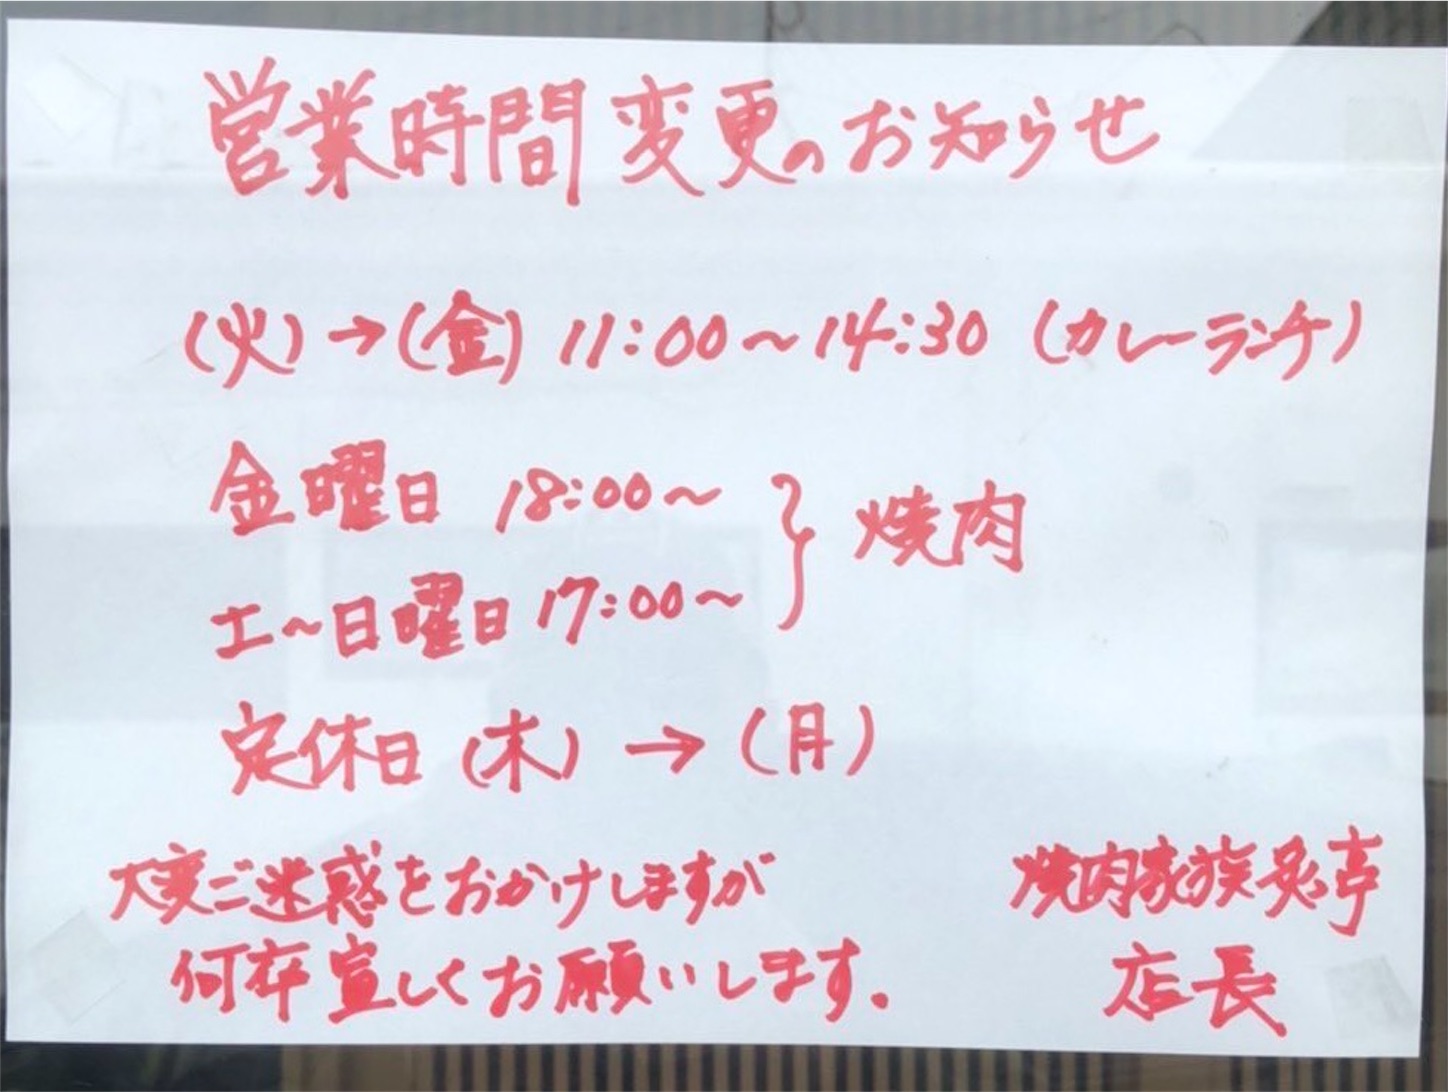 営業時間変更のお知らせ
(火)→(金) 11:00〜14:30 (カレーランチ)
金曜日 18:00〜
土〜日曜日 17:00〜
} 焼肉
定休日 (木) → (月)
大変ご迷惑をおかけしますが
何卒宜しくお願いします。
焼肉家族 亭
店長